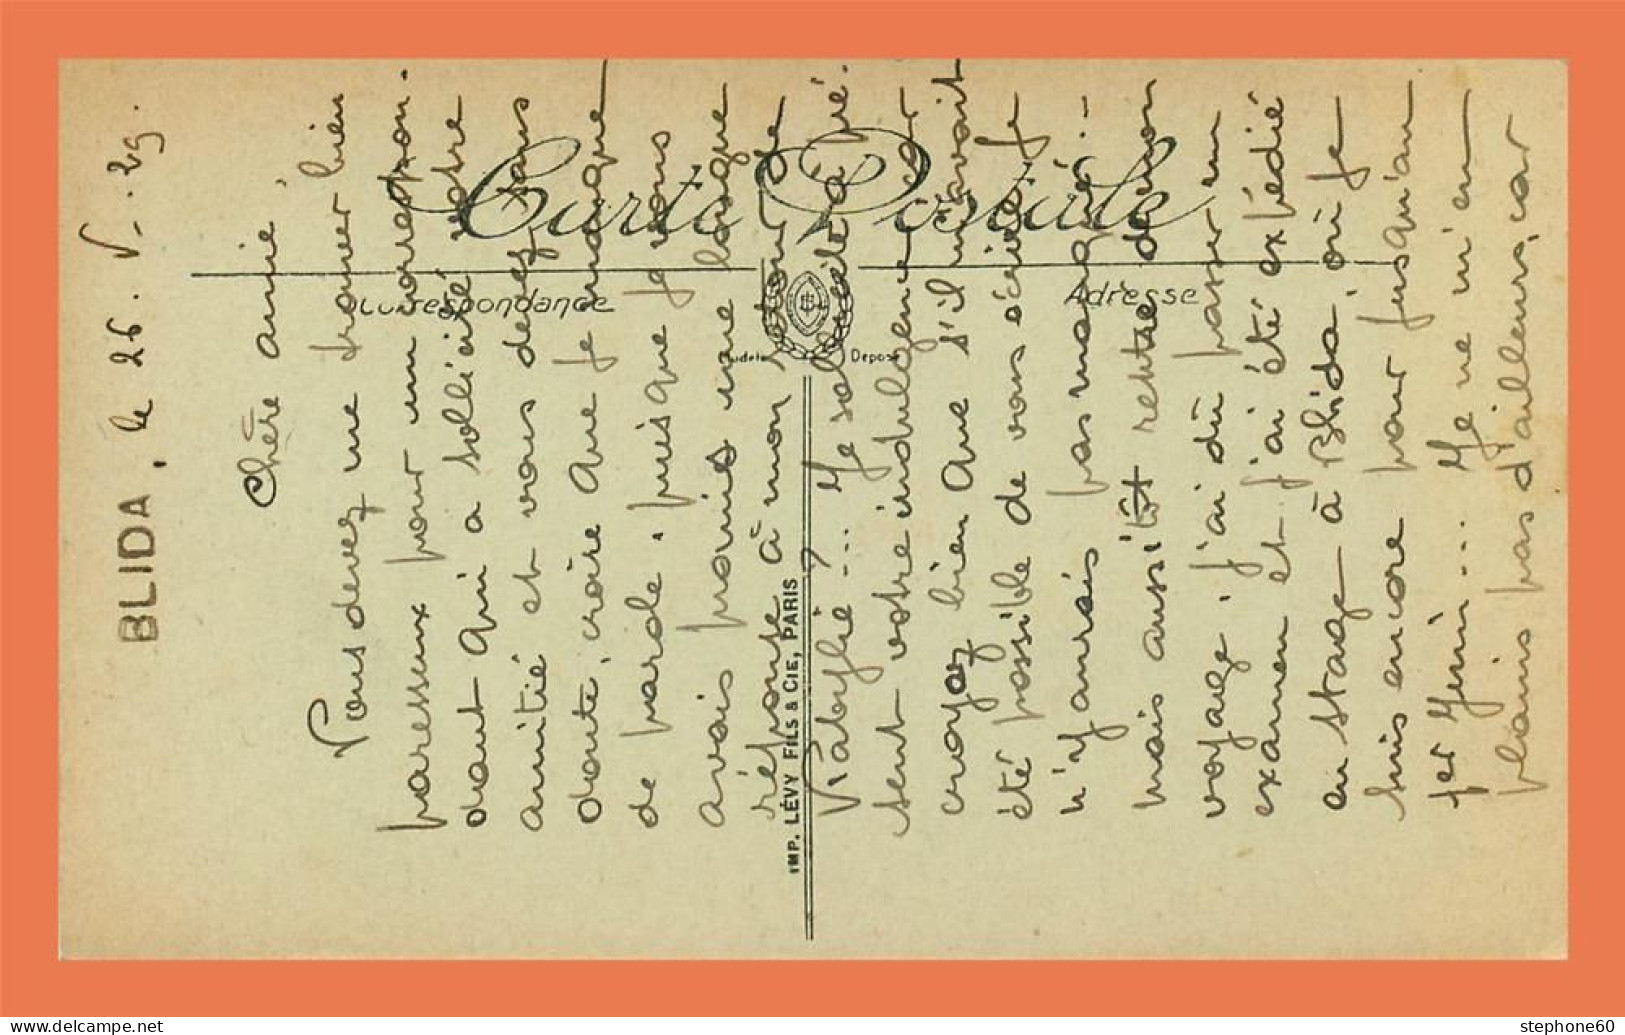 BLIDA, le 26. V. 29.
Chère amie
Vous devez me trouver bien
paresseux pour un correspon-
dant qui a sollicité votre
amitié et vous devez sans
doute, croire que je manque
de parole, puisque je vous
avais promis une longue
réponse à mon retour de
Kabylie ?... Je sollicite à pré-
sent votre indulgence, car
croyez bien que s'il m'avait
été possible de vous écrire je
n'y aurais pas manqué. -
mais aussitôt rentré de mon
voyage, j'ai dû passer un
examen et j'ai été expédié
en stage à Blida, où je
suis encore pour jusqu'au
1er Juin... Je ne m'en
plains pas d'ailleurs, car
Carte Postale
Correspondance
Adresse
Modèle Déposé
IMP. LÉVY FILS & CIE, PARIS
stephone60